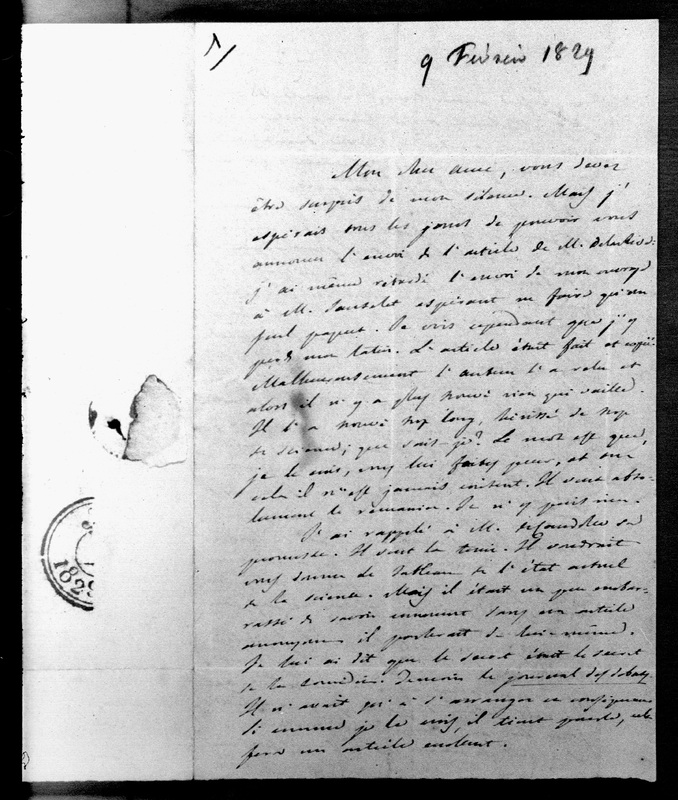 9 Février 1829
Mon cher ami, vous devez
être surpris de mon silence. Mais j'
espérais tous les jours de pouvoir vous
annoncer l'envoi de l'article de M.
j'ai même retardé l'envoi de mon ouvrage
à M. Sautelet espérant ne faire qu'un
seul paquet. Je vois cependant que j'y
perds mon latin. L'article était fait et copié.
Malheureusement l'auteur l'a relu et
alors il n'y a plus trouvé rien qui vaille.
Il l'a trouvé trop long, hérissé de trop
de science; que sais-je? Le mot est que,
je le vois, vous lui faites peur, et sur
cela il n'est jamais content. Il veut abso-
lument le remanier. Je n'y puis rien.
J'ai rappelé à M. sa
promesse. Il veut la tenir. Il voudrait
vous donner le tableau de l'état actuel
de la science. Mais il était un peu embar-
rassé de savoir comment dans un article
anonyme il parlerait de lui-même.
Je lui ai dit que le secret était le secret
de la comédie derrière le journal des débats.
Il n'avait qu'à s'arranger en conséquence
Si comme je le crois, il tient parole, cela
fera un article excellent.
1829